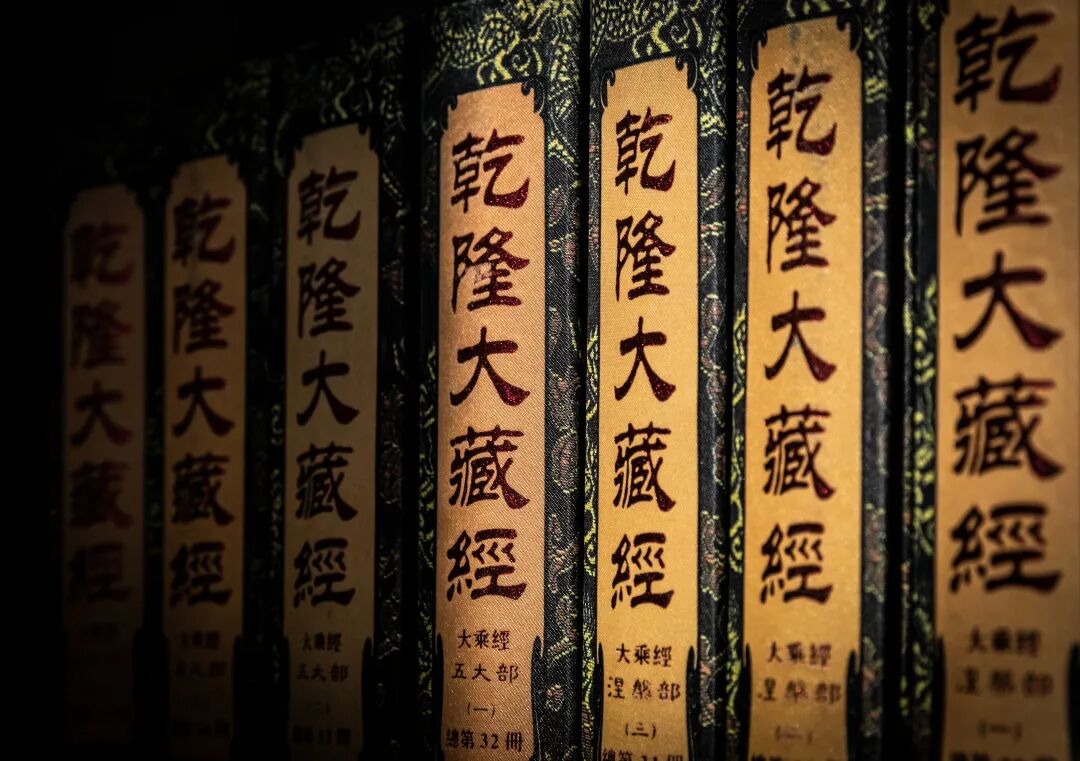 乾隆大藏經
大乘經
涅槃部
(一)
乾隆大藏經
大乘經
涅槃部
(二)
乾隆大藏經
大乘經
涅槃部
(三)
乾隆大藏經
大乘經
五大部
(一)
總第32冊
乾隆大藏經
大乘經
五大部
(二)
總第33冊
乾隆大藏經
大乘經
五大部
乾隆大藏經